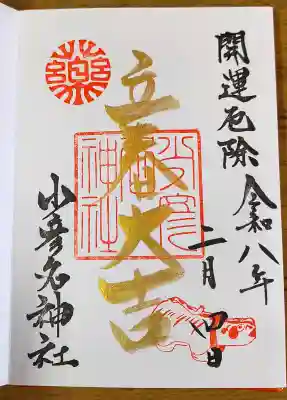 開運厄除
令和八年
二月四日
立春大吉
少彦名神社